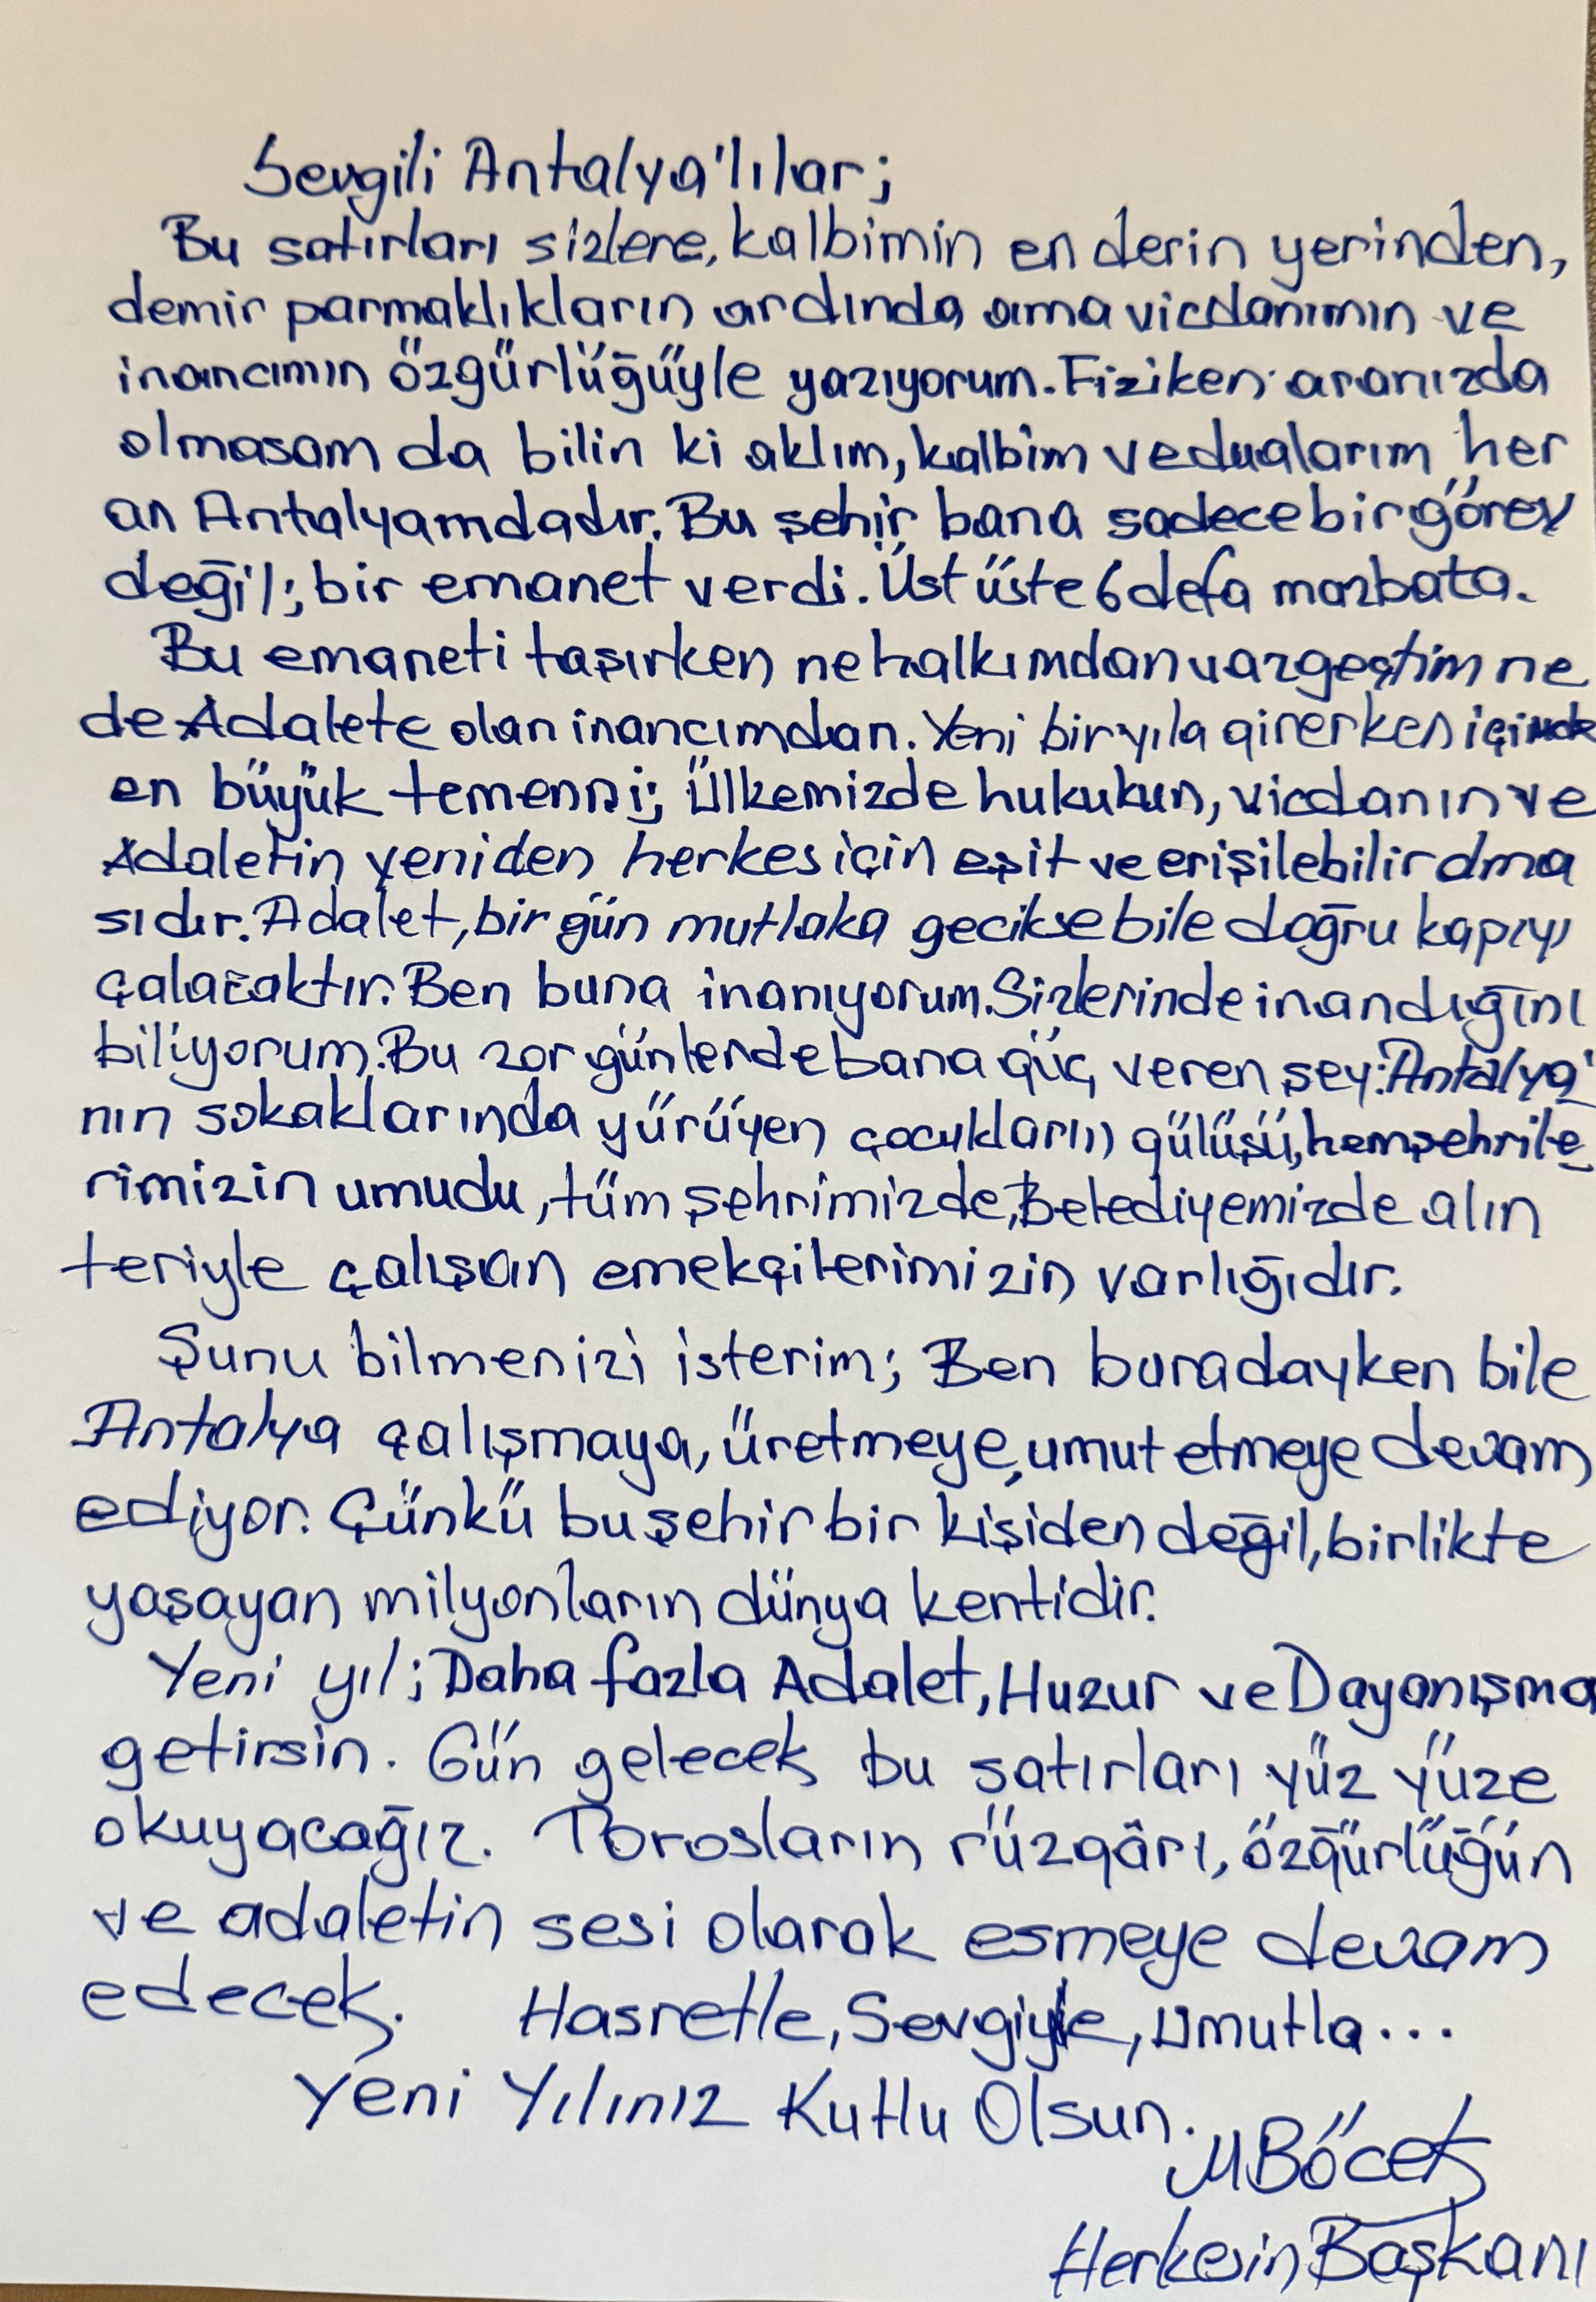 Sevgili Antalya'lılar;
Bu satırları sizlere, kalbimin en derin yerinden,
demir parmaklıkların ardında ama vicdanımın ve
inancımın özgürlüğüyle yazıyorum. Fiziken aranızda
olmasam da bilin ki aklım, kalbim ve dualarım her
an Antalyamdadır. Bu şehir bana sadece bir görev
değil; bir emanet verdi. Üst üste 6 defa mazbata.
Bu emaneti taşırken ne halkımdan vazgeçtim ne
de Adalete olan inancımdan. Yeni bir yıla girerken
en büyük temenni; Ülkemizde hukukun, vicdanın ve
Adaletin yeniden herkes için eşit ve erişilebilir olma
sıdır. Adalet, bir gün mutlaka gecikse bile doğru kapıyı
çalacaktır. Ben buna inanıyorum. Sizlerinde inandığını
biliyorum. Bu zor günlerde bana güç veren şey: Antalya'
nın sokaklarında yürüyen çocukların gülüşü, hemşehrile
rimizin umudu, tüm şehrimizde, Belediyemizde alın
teriyle çalışan emekçilerimizin varlığıdır.
Şunu bilmenizi isterim; Ben buradayken bile
Antalya çalışmaya, üretmeye, umut etmeye devam
ediyor. Çünkü bu şehir bir kişiden değil, birlikte
yaşayan milyonların dünya kentidir.
Yeni yıl; Daha fazla Adalet, Huzur ve Dayanışma
getirsin. Gün gelecek bu satırları yüz yüze
okuyacağız. Torosların rüzgârı, özgürlüğün
ve adaletin sesi olarak esmeye devam
edecek. Hasretle, Sevgiyle, Umutla...
Yeni Yılınız Kutlu Olsun.
M Böcek
Herkesin Başkanı